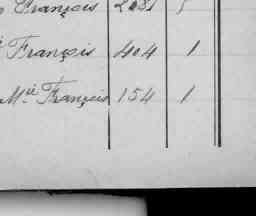 François
François 404 1
Mie François 154 1